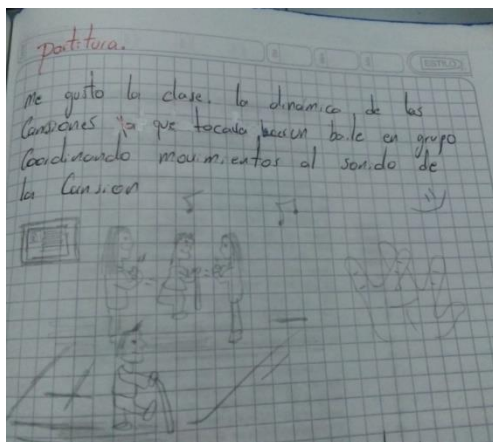 Partitura.
me gusto la clase. la dinamica de las
Cansiones ya que tocada hacian baile en grupo
Coordinando movimientos al sonido de
la Cansion